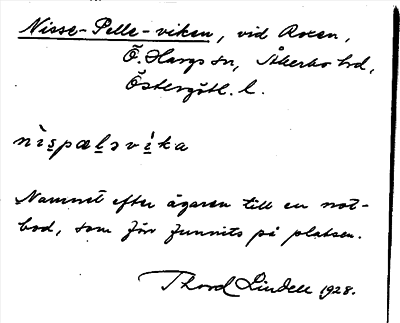 Nisse-Pelle-viken, vid Roxen,
Ö. Hargs sn, Åkerbo hd,
Östergötl. l.
nìspæl̠sv̠íka
Namnet efter ägaren till en not-
bod, som förr funnits på platsen.
Thord Lindell 1928.